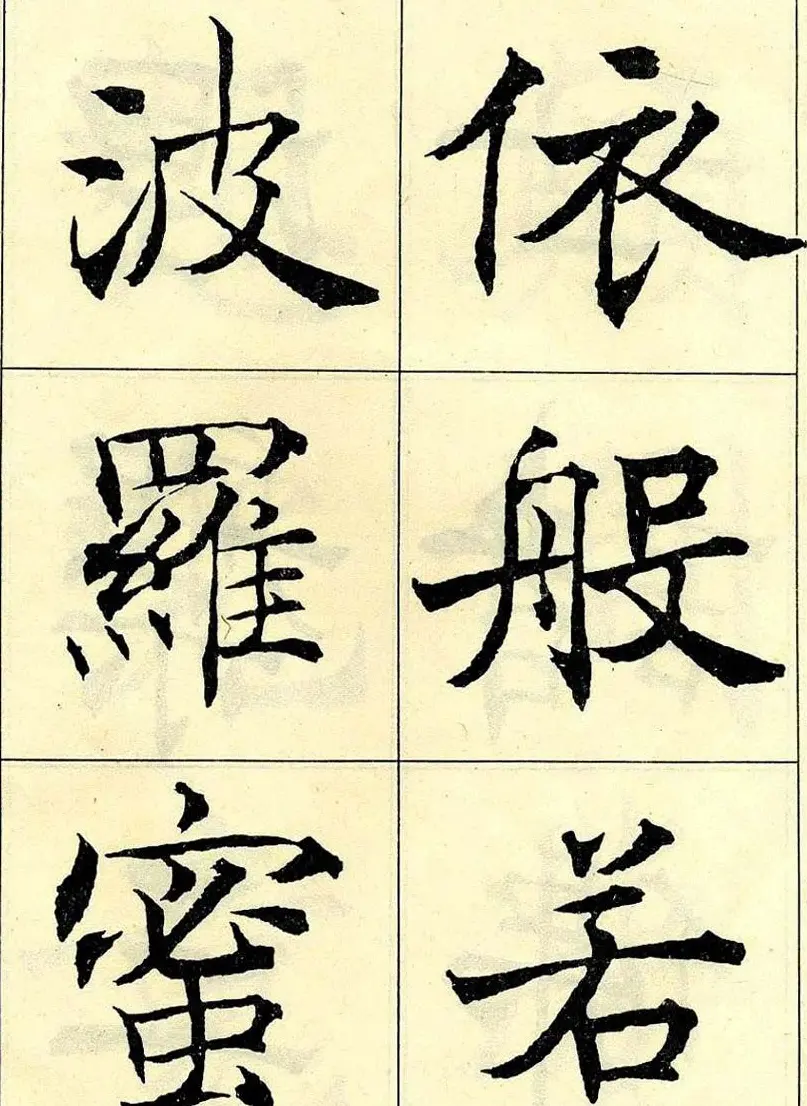 依般若
波羅蜜